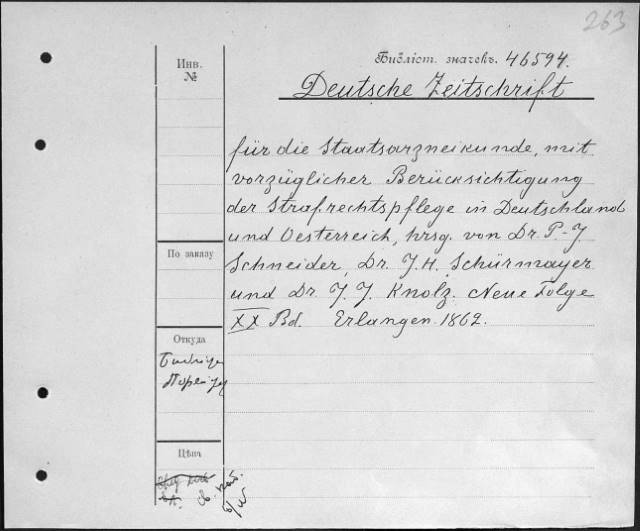 263
Инв.
№
Библіот. значекъ. 46594.
Deutsche Zeitschrift
für die Staatsarzneikunde, mit
vorzüglicher Berücksichtigung
der Strafrechtspflege in Deutschland
und Oesterreich, hrsg. von Dr. P.-J.
Schneider, Dr. J. H. Schürmayer
und Dr. J. J. Knolz. Neue Folge
XX Bd. Erlangen 1862.
По заказу
Откуда
Цѣна